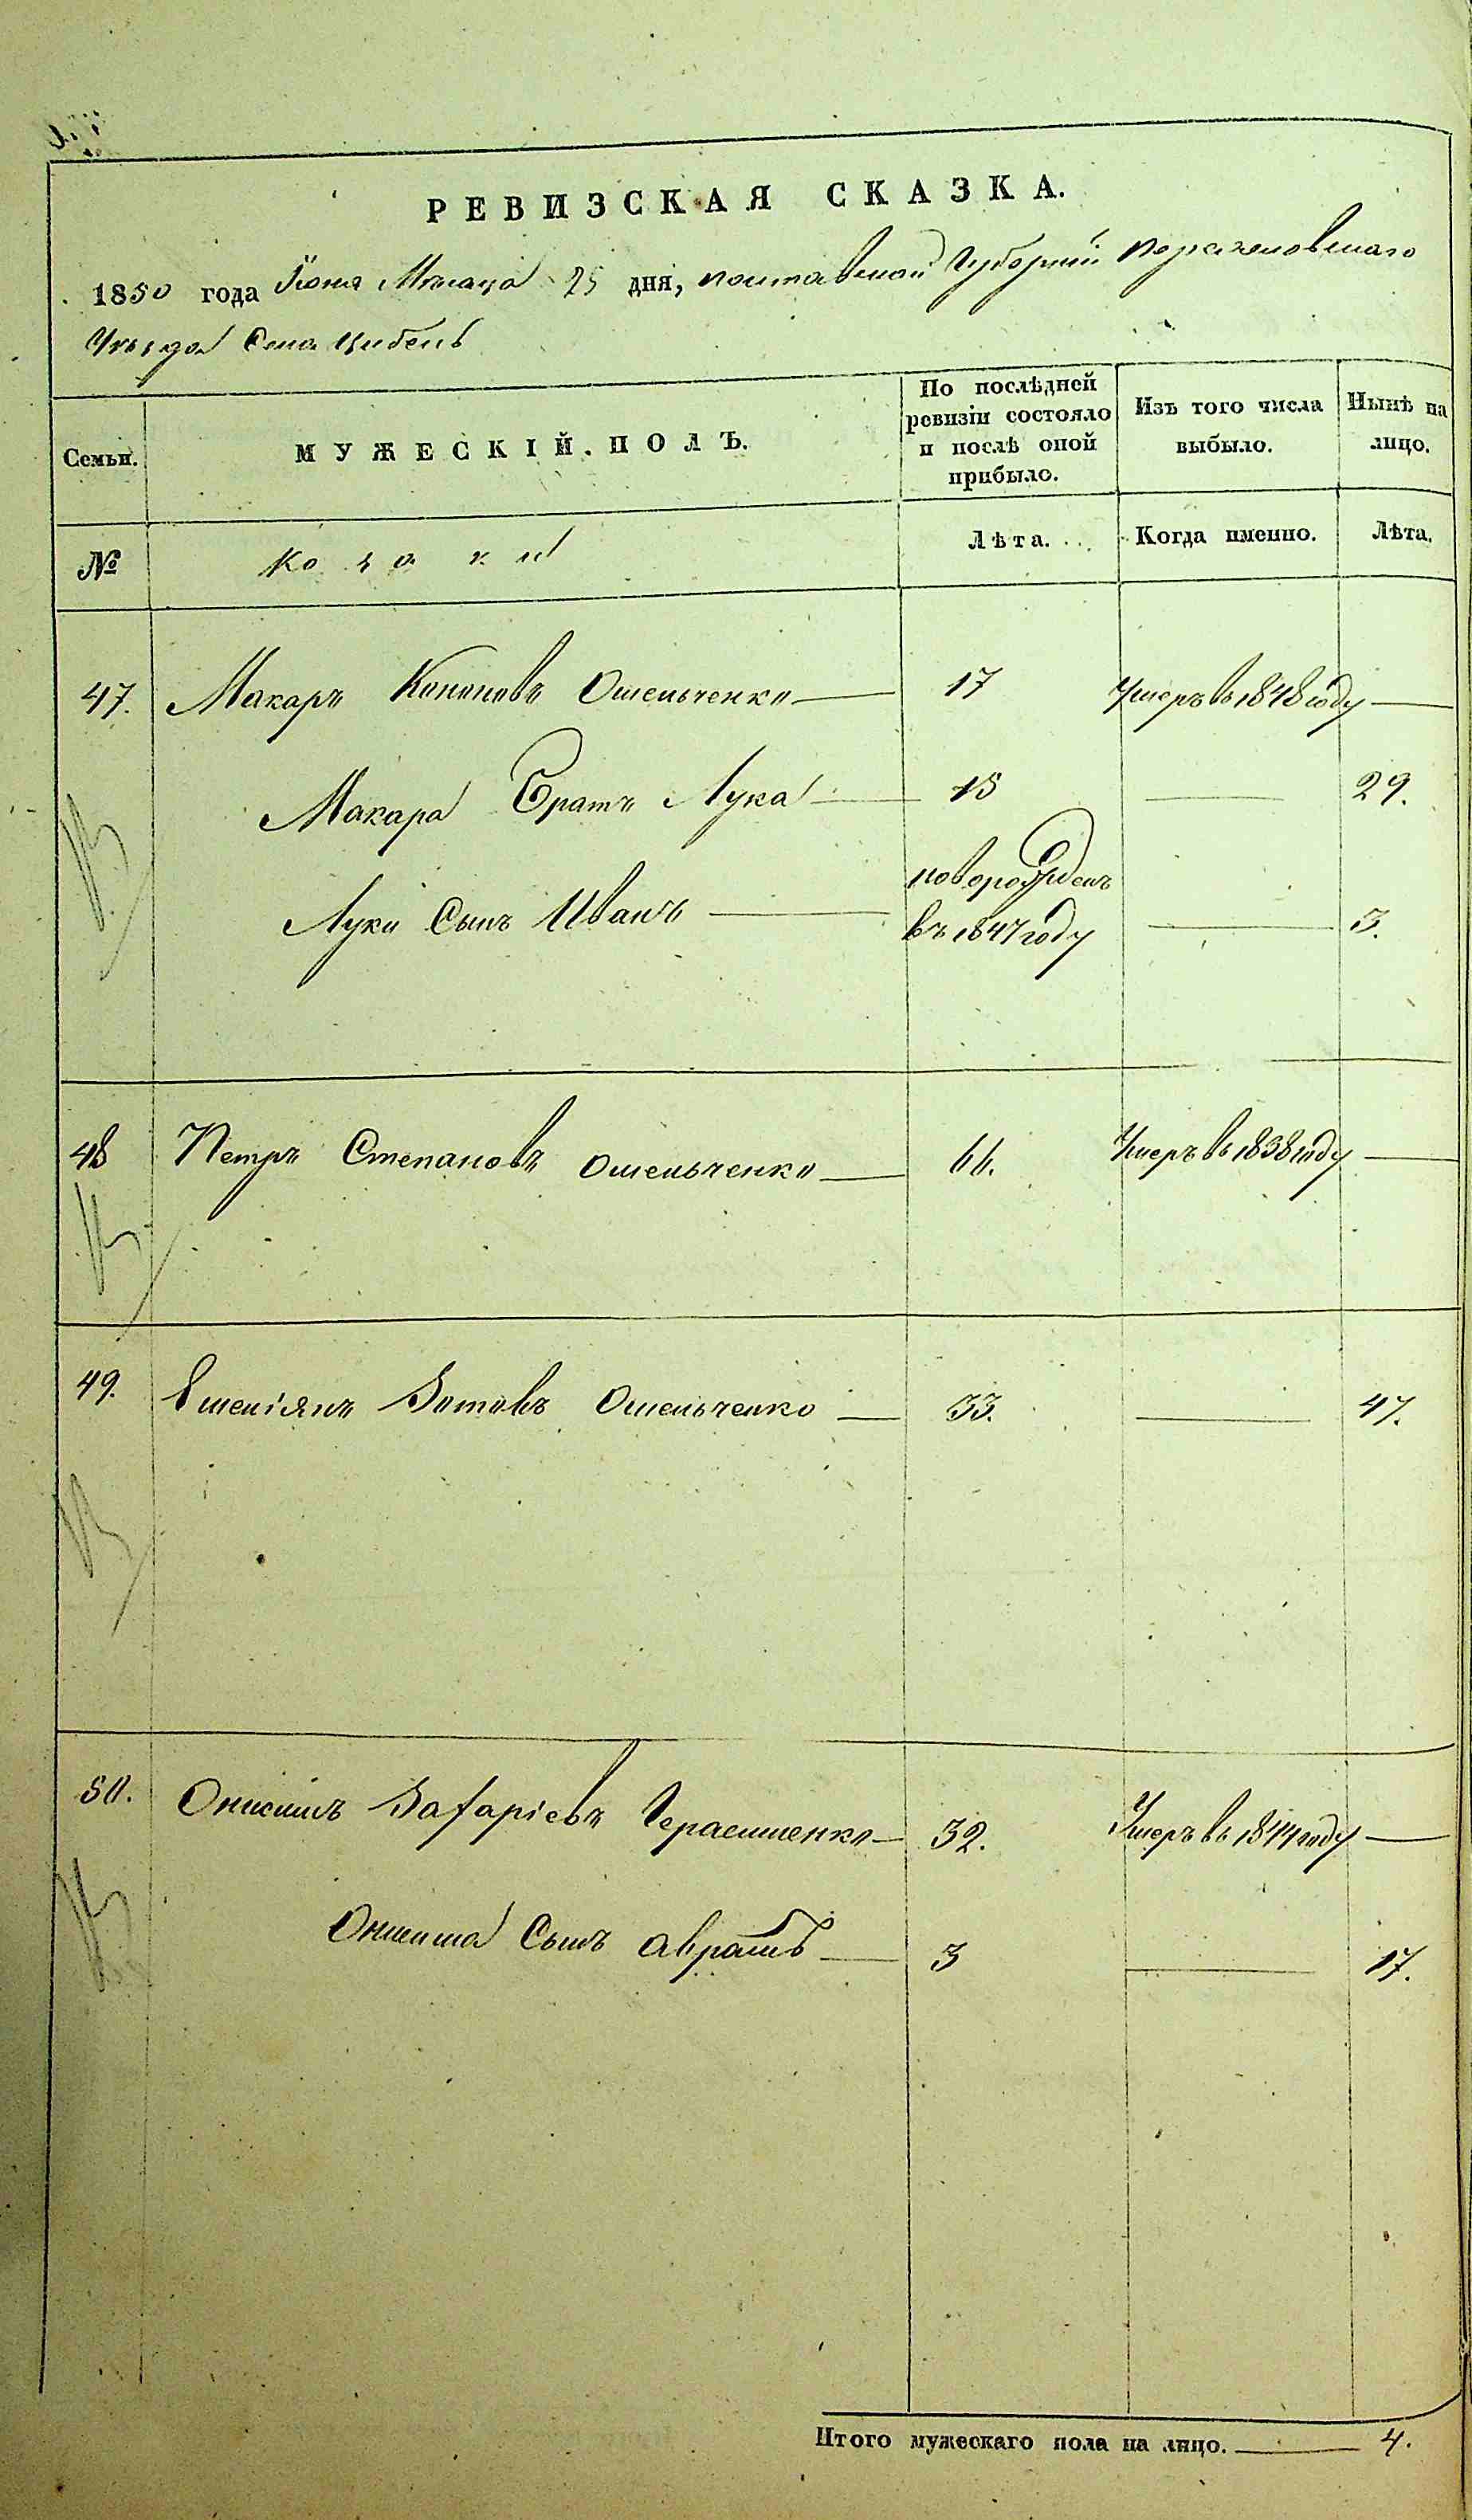 РЕВИЗСКАЯ СКАЗКА.
1850 года Іюня Мѣсяца 25 дня, полтавской Губерніи переяславскаго
Уѣзда Села Цибель
Семьи. МУЖЕСКІЙ ПОЛЪ. По послѣдней ревизіи состояло и послѣ оной прибыло. Изъ того числа выбыло. Нынѣ на лицо.
№ Козаки Лѣта. Когда именно. Лѣта.
47. Макаръ Кононовъ Омельченко 17 Умеръ въ 1848 году
Макара Братъ Лука 15 29.
новорожденъ
Луки Сынъ Иванъ въ 1847 году 3.
48 Петръ Степановъ Омельченко 66. Умеръ въ 1838 году
49. Емеліянъ Зотовъ Омельченко 33. 47.
50. Онисимъ Захаріевъ Герасименко 32. Умеръ въ 1844 году
Онисима Сынъ Аврамъ 3 17.
Итого мужескаго пола на лицо. 4.